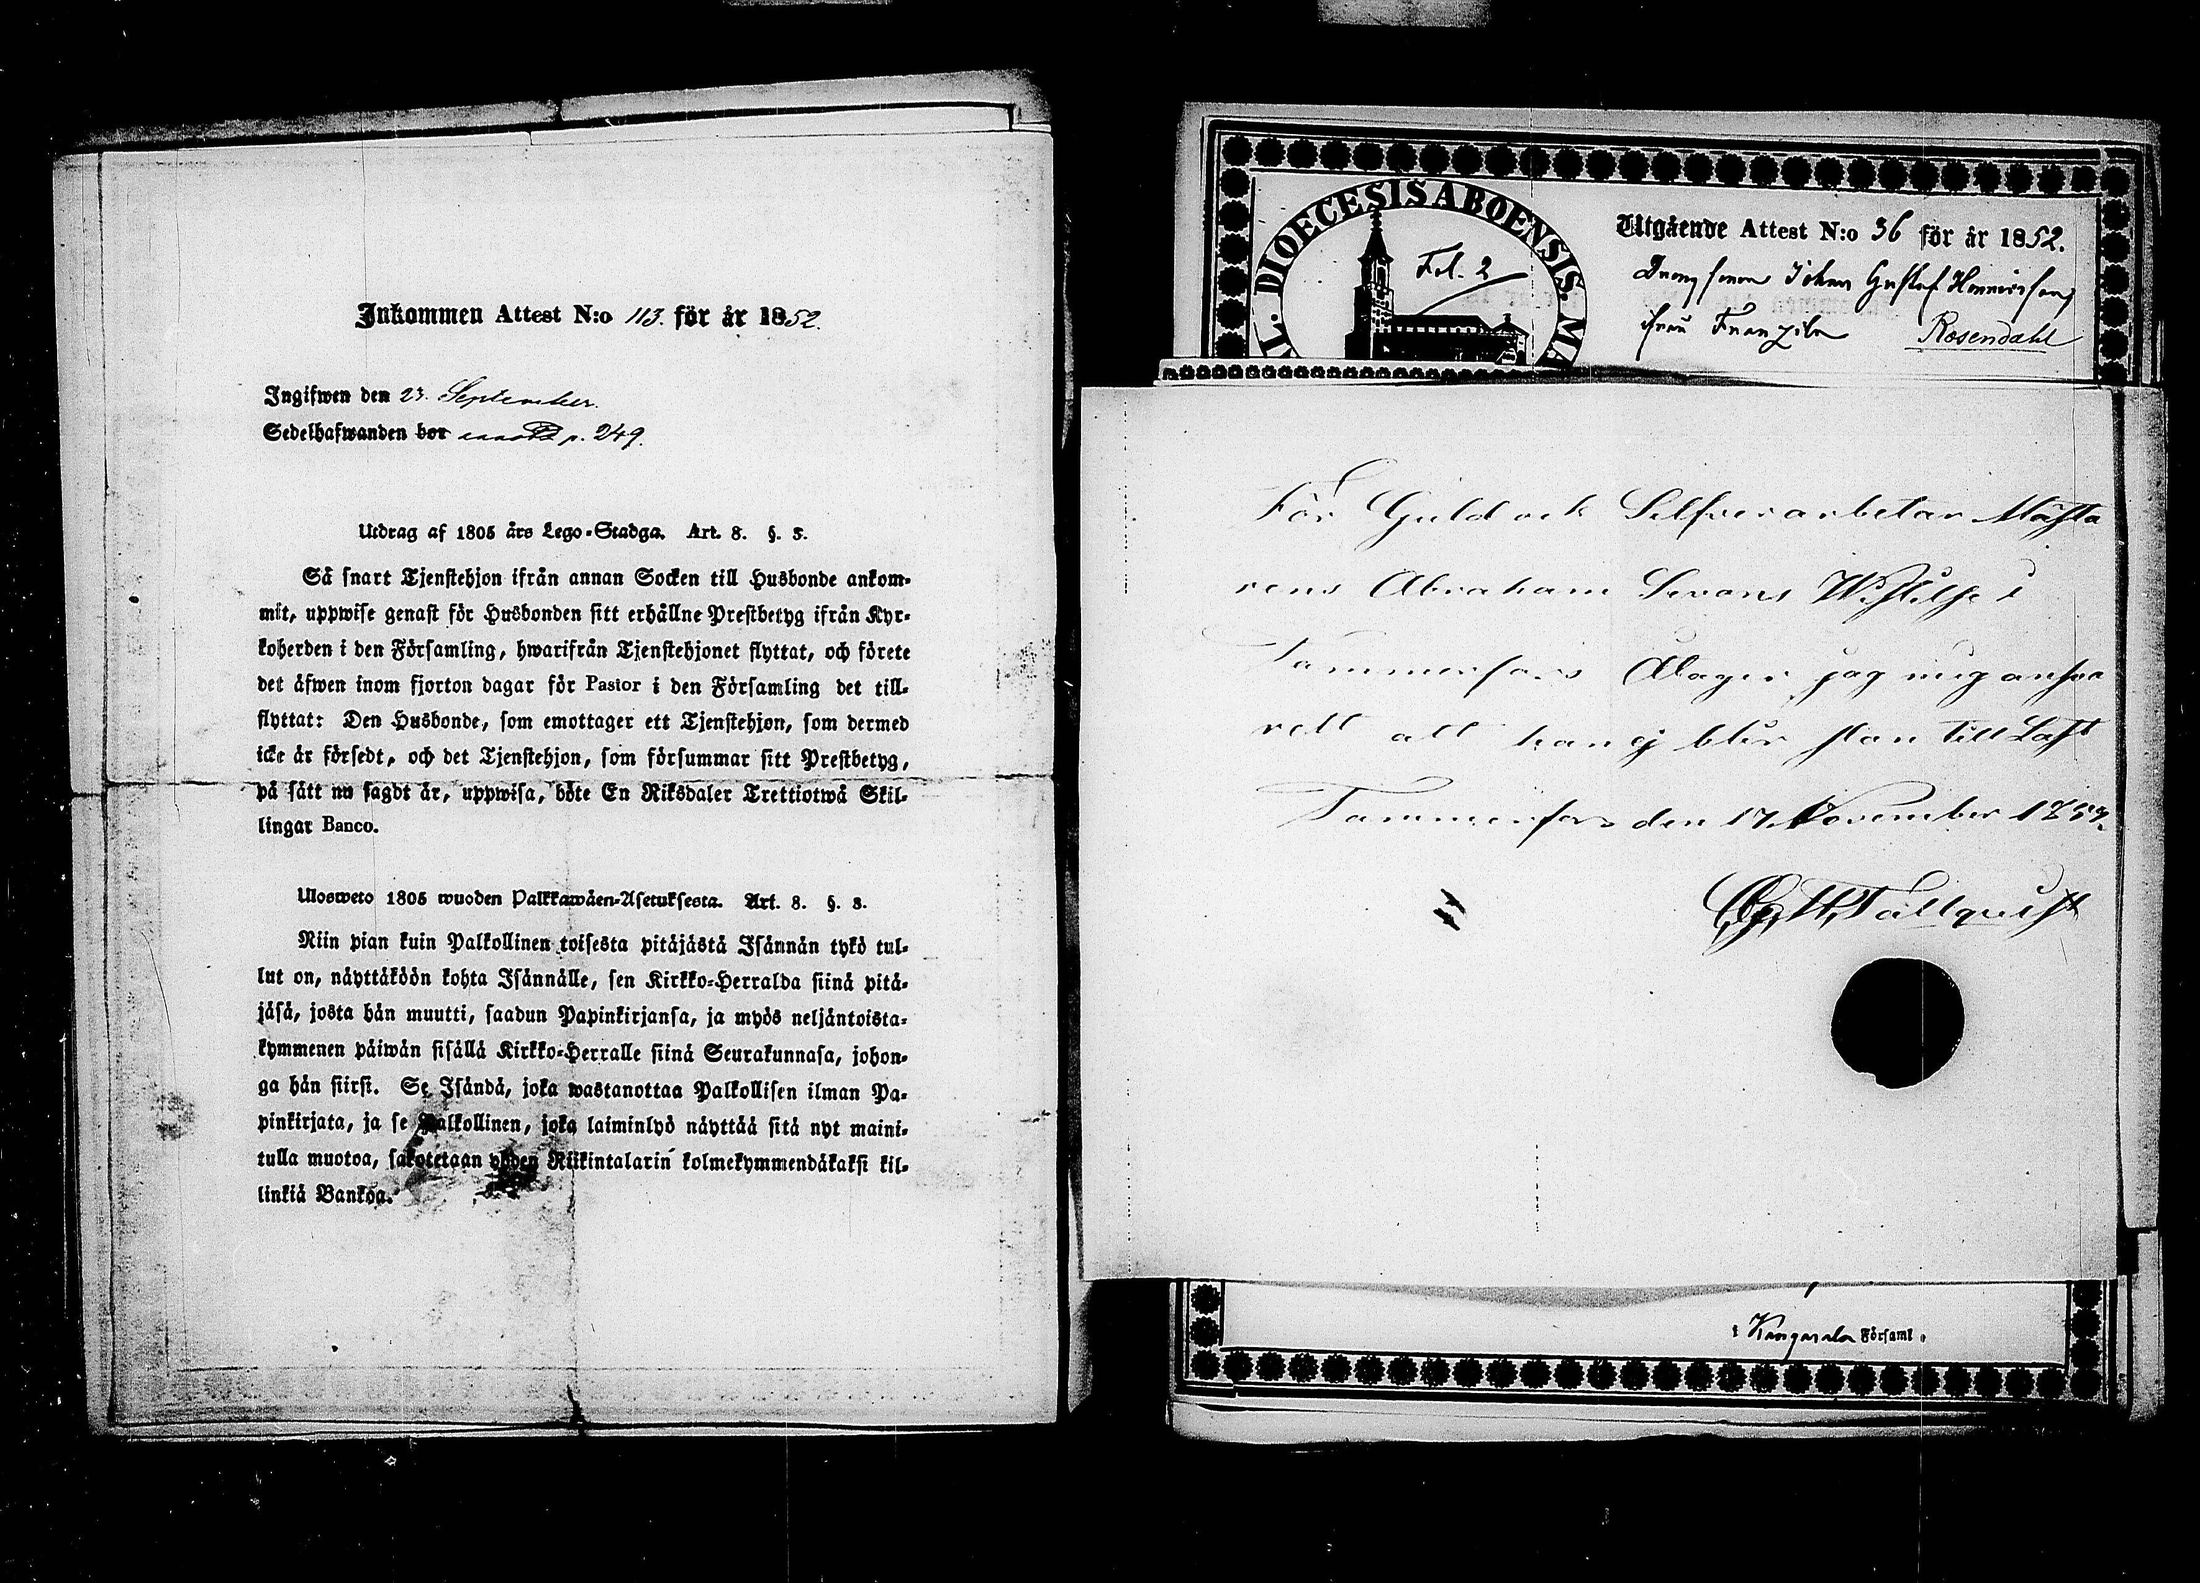 Inkommen Attest N:o 113. för år 1852.
Ingifwen den 23. September.
Sedelhafwanden bor p. 249.
Utdrag af 1805 års Lego-Stadga. Art. 8. §. 3.
Så snart Tjenstehjon ifrån annan Socken till Husbonde ankom-
mit, uppwise genast för Husbonden sitt erhållne Prestbetyg ifrån Kyr-
koherden i den Församling, hwarifrån Tjenstehjonet flyttat, och förete
det äfwen inom fjorton dagar för Pastor i den Församling det till-
flyttat: Den Husbonde, som emottager ett Tjenstehjon, som dermed
icke är försedt, och det Tjenstehjon, som försummar sitt Prestbetyg,
på sätt nu sagdt är, uppwisa, böte En Riksdaler Trettiotwå Skil-
lingar Banco.
Ulosweto 1805 wuoden Palkkawäen-Asetuksesta. Art. 8. §. 3.
Niin pian kuin Palkollinen toisesta pitäjästä Isännän tykö tul-
lut on, näyttäköön kohta Isännälle, sen Kirkko-Herralda siinä pitä-
jäsä, josta hän muutti, saadun Papinkirjansa, ja myös neljäntoista-
kymmenen päiwän sisällä Kirkko-Herralle siinä Seurakunnasa, johon-
ga hän siirsi. Se Isändä, joka wastanottaa Palkollisen ilman Pa-
pinkirjata, ja se Palkollinen, joka laiminlyö näyttää sitä nyt maini-
tulla muotoa, sakotetaan yhden Riikintalarin kolmekymmendäkaksi kil-
linkiä Bankoa.
L. DIOECESIS ABOENSIS. MA
Fol. 2
Utgående Attest N:o 36 för år 1852.
Johan Gustaf
Rosendahl
För Guld och Silfverarbetar Mästa
rens Abraham Levons Wistelse i
Tammerfors Åtager jag mig ansva
rett att han ej blir stan till Last
Tammerfors den 17 November 1852.
Tallqvist
i Kangasala Församl.